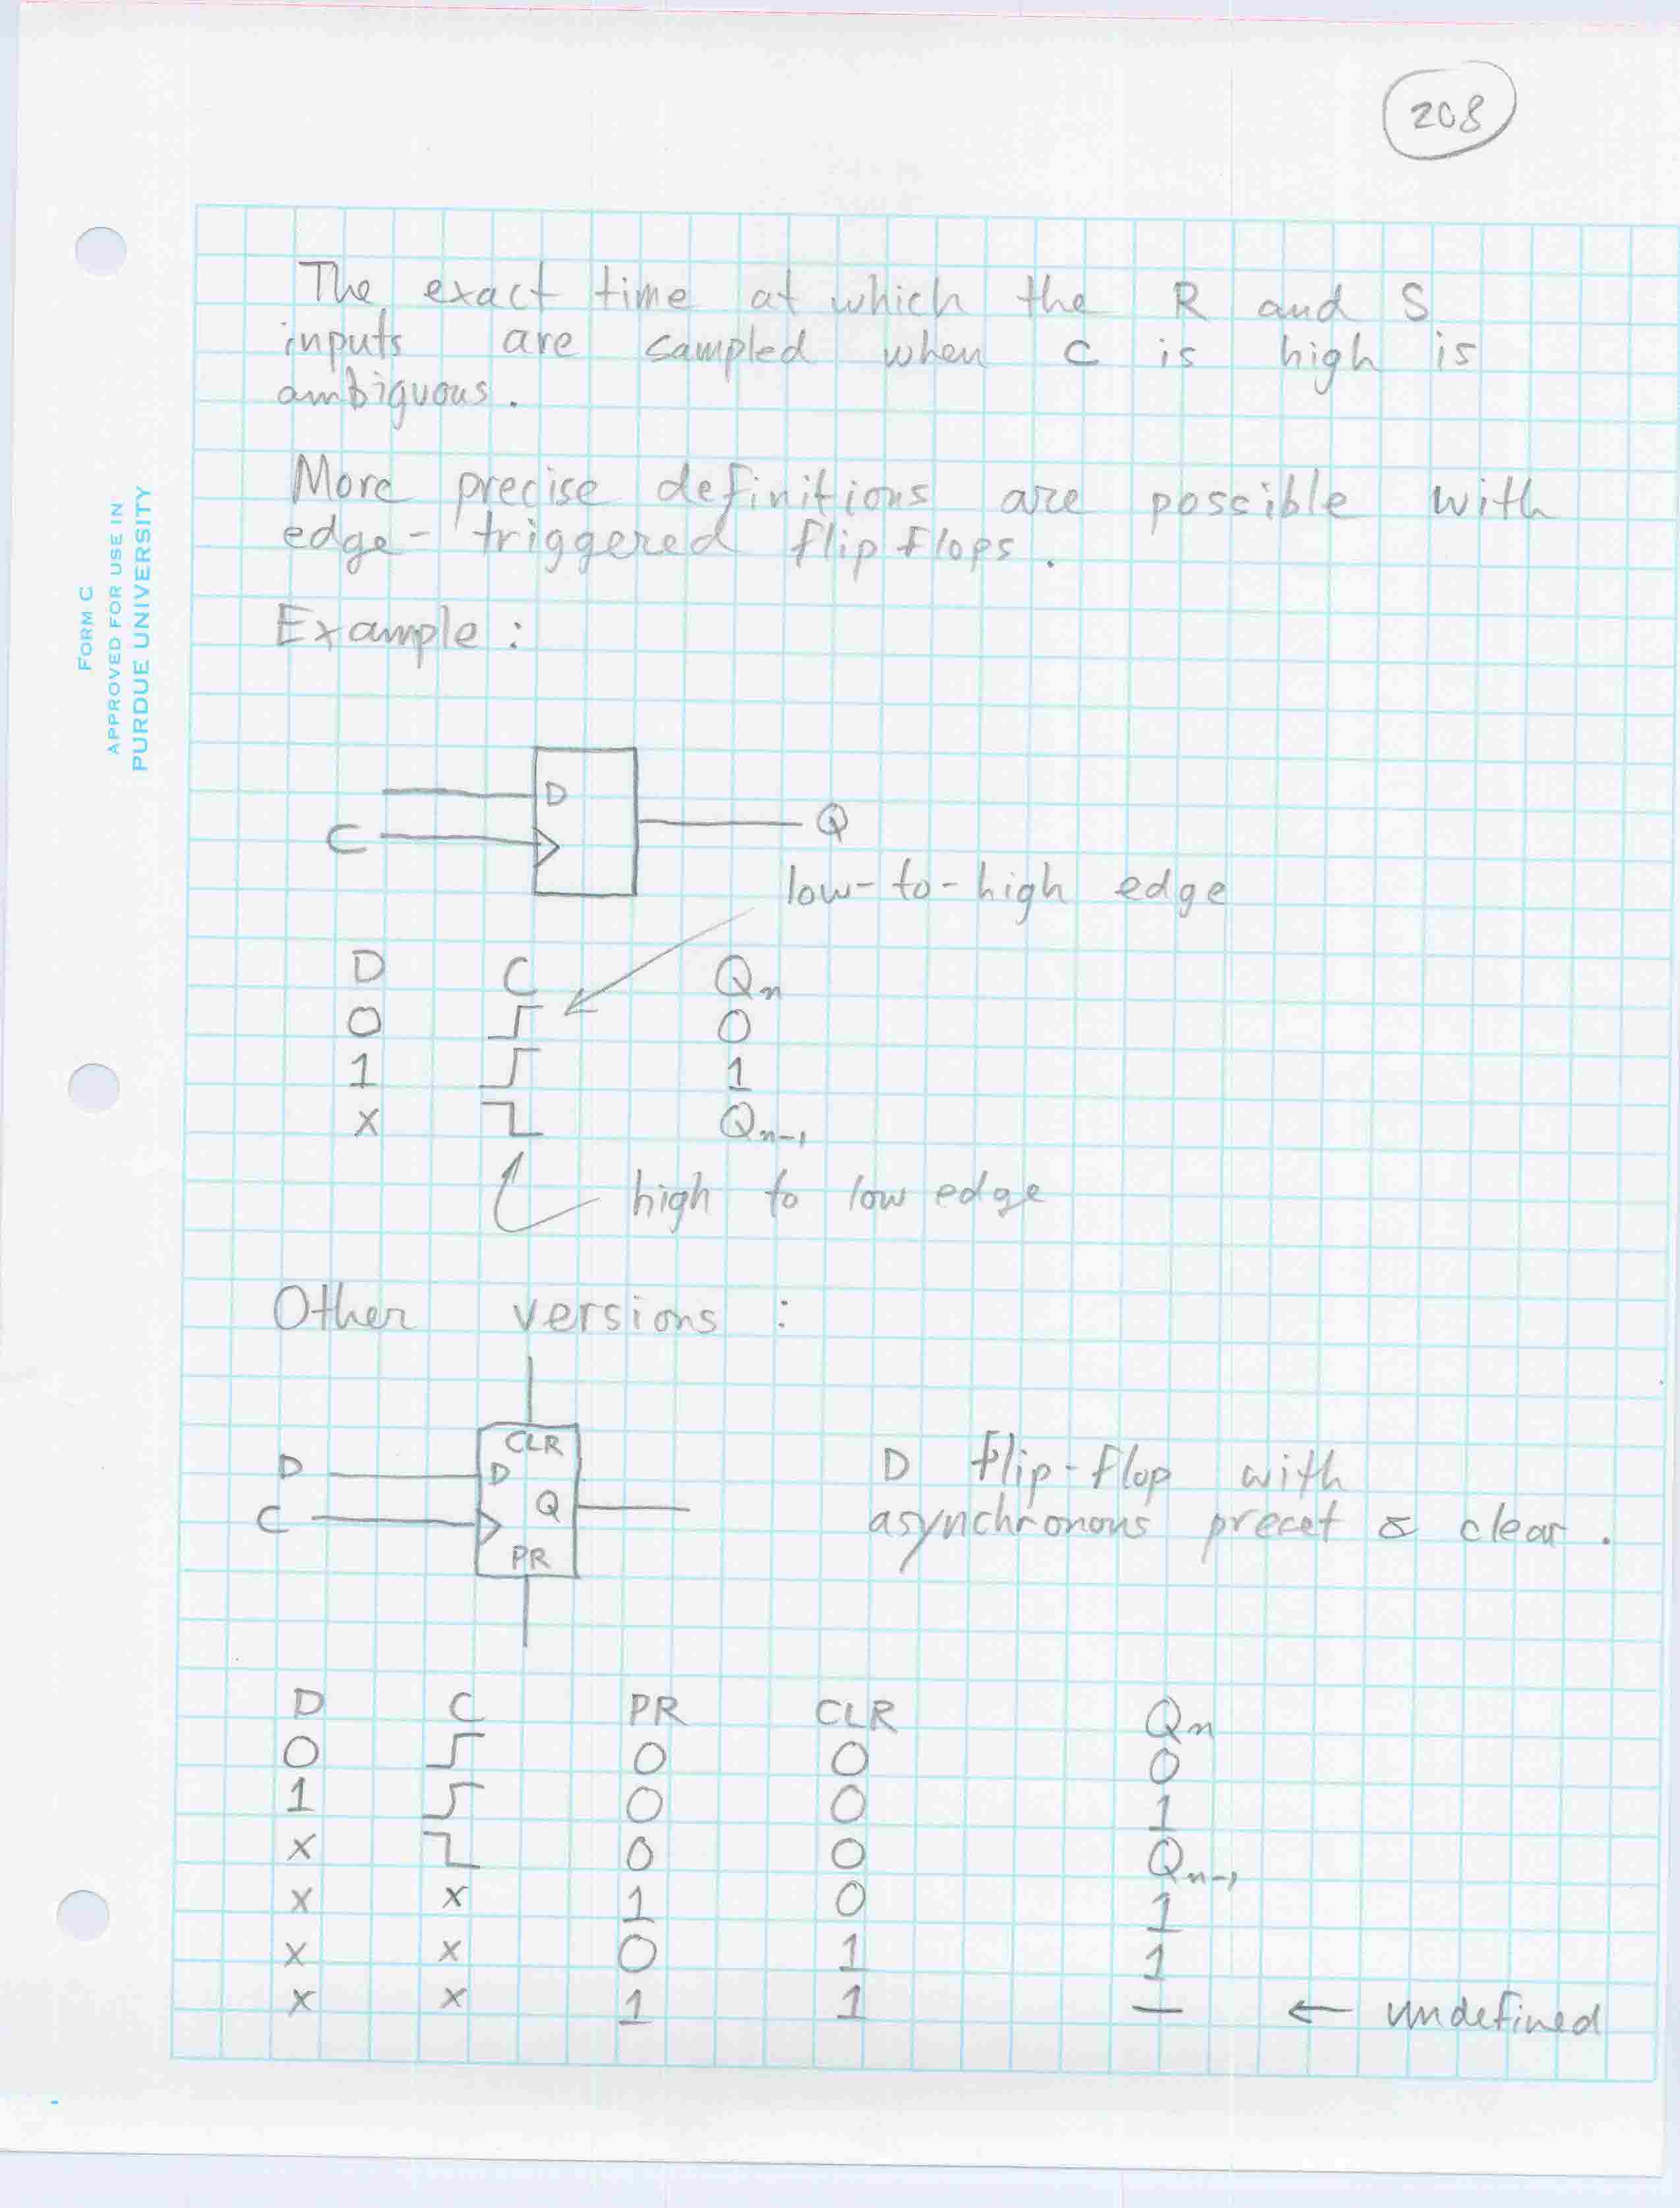 208
The exact time at which the R and S
inputs are sampled when C is high is
ambiguous.
More precise definitions are possible with
edge-triggered flip flops.
Example:
FORM C
APPROVED FOR USE IN
PURDUE UNIVERSITY
D
C
Q
low-to-high edge
D C Qn
0 0
1 1
x Qn-1
high to low edge
Other versions:
CLR
D D
Q
C
PR
D flip-flop with
asynchronous preset & clear.
D C PR CLR Qn
0 0 0 0
1 0 0 1
x 0 0 Qn-1
x x 1 0 1
x x 0 1 1
x x 1 1 — ← undefined